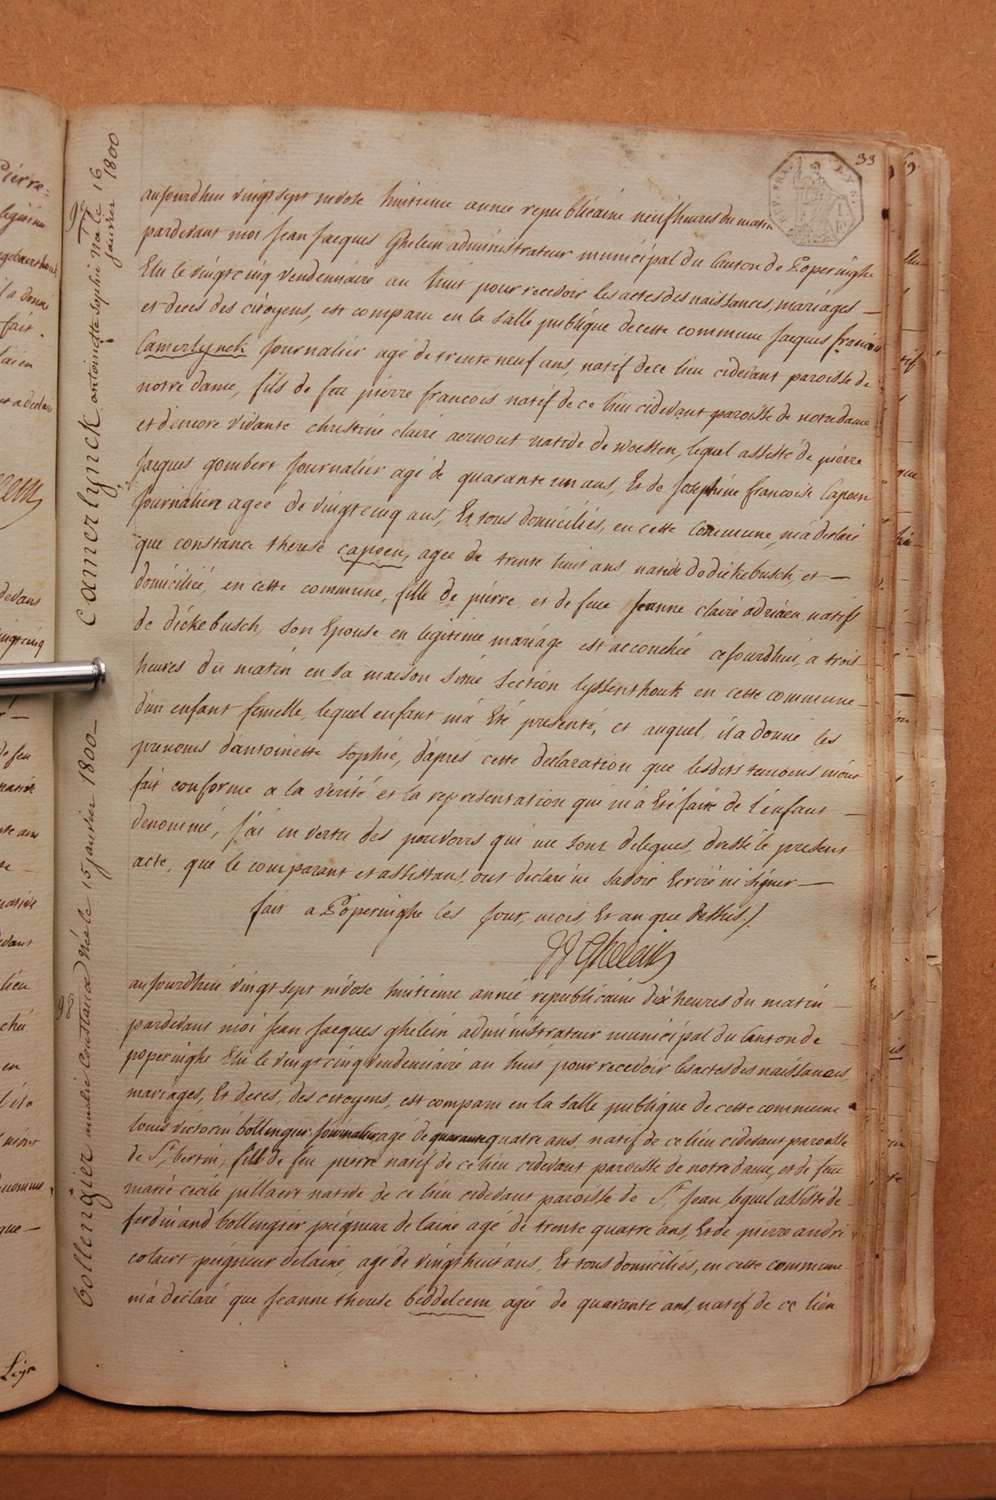 33
97
Camerlynck antoinette Sophie Née le 16
janvier 1800
aujourdhui vingt sept nivose huitieme année republicaine neuf heures du matin
pardevant moi Jean Jacques Ghelein administrateur municipal du Canton de Poperinghe
Elu le vingt cinq vendemiaire an huit pour recevoir les actes des naissances, mariages —
et deces des citoyens, est comparu en la Salle publique de cette commune Jacques francois
Camerlynck Journalier agé de trente neuf ans, natif de ce lieu cidevant paroisse de
notre dame, fils de feu pierre francois natif de ce lieu cidevant paroisse de notre dame
et d'encore vivante christine claire aernout native de woesten, lequel assisté de pierre
Jacques gombert Journalier agé de quarante un ans, Et de Josephine francoise Capoen
Journaliere agee de vingt cinq ans, Et tous domiciliés, en cette Commune, m'a declaré
que constance therese capoen, agee de trente huit ans native de dickebusch, et —
domiciliée, en cette commune, fille de pierre, et de feue Jeanne claire adriaen natifs
de dickebusch, Son Epouse en legitime mariage est accouchée cejourdhui, a trois
heures du matin en sa maison Sise Section lyssenthouk en cette commune —
d'un enfant femelle, lequel enfant m'a Eté presenté, et auquel il a donne les
prenoms d'antoinette Sophie, d'apres cette declaration que lesdits temoins m'ont
fait conforme a la verité et la representation qui m'a Eté faite de l'enfant —
denommé, j'ai en vertu des pouvoirs qui me Sont delegues, dressé le present
acte, que le comparant et assistans, ont declaré ne Savoir Ecrire ni Signer —
fait a Poperinghe les jour, mois Et an que dessus./.
JJ Ghelein
98
bollengier amelie Constance Née le 15 janvier 1800 —
aujourdhui vingt sept nivose huitieme année republicaine dix heures du matin
pardevant moi Jean Jacques ghelein administrateur municipal du Canton de —
poperinghe Elu le vingt cinq vendemiaire an huit pour recevoir les actes des naissances
mariages, Et deces, des citoyens, est comparu en la Salle publique de cette commune
louis victorin bollengier Journalier agé de quarante quatre ans natif de ce lieu cidevant paroisse
de St. bertin, fils de feu pierre natif de ce lieu cidevant paroisse de notre dame, et de feue
marie cecile pillaert native de ce lieu cidevant paroisse de St. Jean, lequel assisté de
ferdinand bollengier peigneur de laine agé de trente quatre ans, Et de pierre andre
colaert peigneur de laine, agé de vingt huit ans, Et tous domiciliés, en cette commune
m'a déclaré que Jeanne therese beddeleem, agée de quarante ans, natif de ce lieu